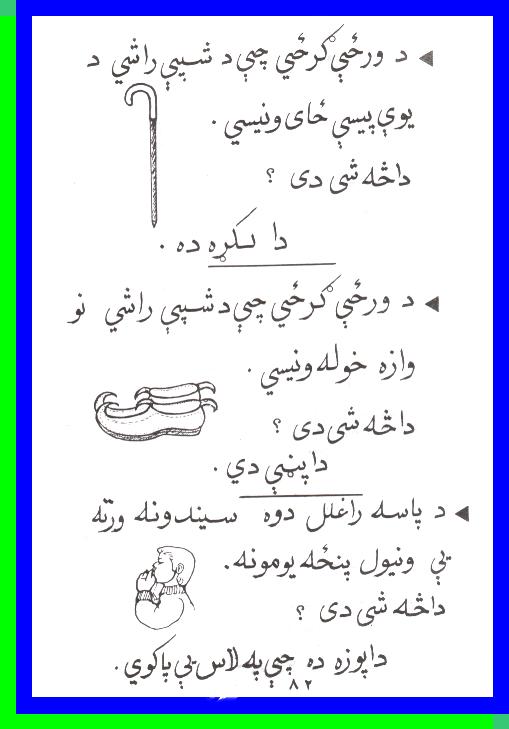 ◀ د ورځې گرځي چې د شپې راشي د
یوې پیسې ځای ونیسي .
داڅه شی دی ؟
دا لکړه ده .
◀ د ورځې گرځي چې د شپې راشي نو
وازه خوله ونیسي .
داڅه شی دی ؟
داپڼې دي .
◀ د پاسه راغلل دوه سیندونه ورته
یې ونیول پنځه یومونه .
داڅه شی دی ؟
داپوزه ده چې په لاس یې پاکوي .
۸۲